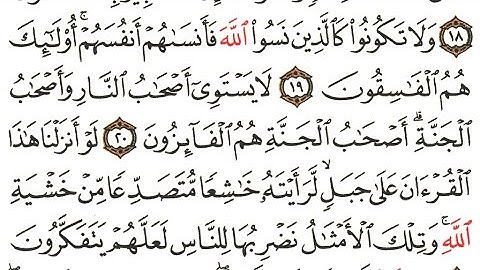 ١٨ وَلَا تَكُونُوا۟ كَٱلَّذِينَ نَسُوا۟ ٱللَّهَ فَأَنسَىٰهُمْ أَنفُسَهُمْ ۚ أُو۟لَـٰٓئِكَ
هُمُ ٱلْفَـٰسِقُونَ ١٩ لَا يَسْتَوِىٓ أَصْحَـٰبُ ٱلنَّارِ وَأَصْحَـٰبُ
ٱلْجَنَّةِ ۚ أَصْحَـٰبُ ٱلْجَنَّةِ هُمُ ٱلْفَآئِزُونَ ٢٠ لَوْ أَنزَلْنَا هَـٰذَا
ٱلْقُرْءَانَ عَلَىٰ جَبَلٍ لَّرَأَيْتَهُۥ خَـٰشِعًا مُّتَصَدِّعًا مِّنْ خَشْيَةِ
ٱللَّهِ ۚ وَتِلْكَ ٱلْأَمْثَـٰلُ نَضْرِبُهَا لِلنَّاسِ لَعَلَّهُمْ يَتَفَكَّرُونَ